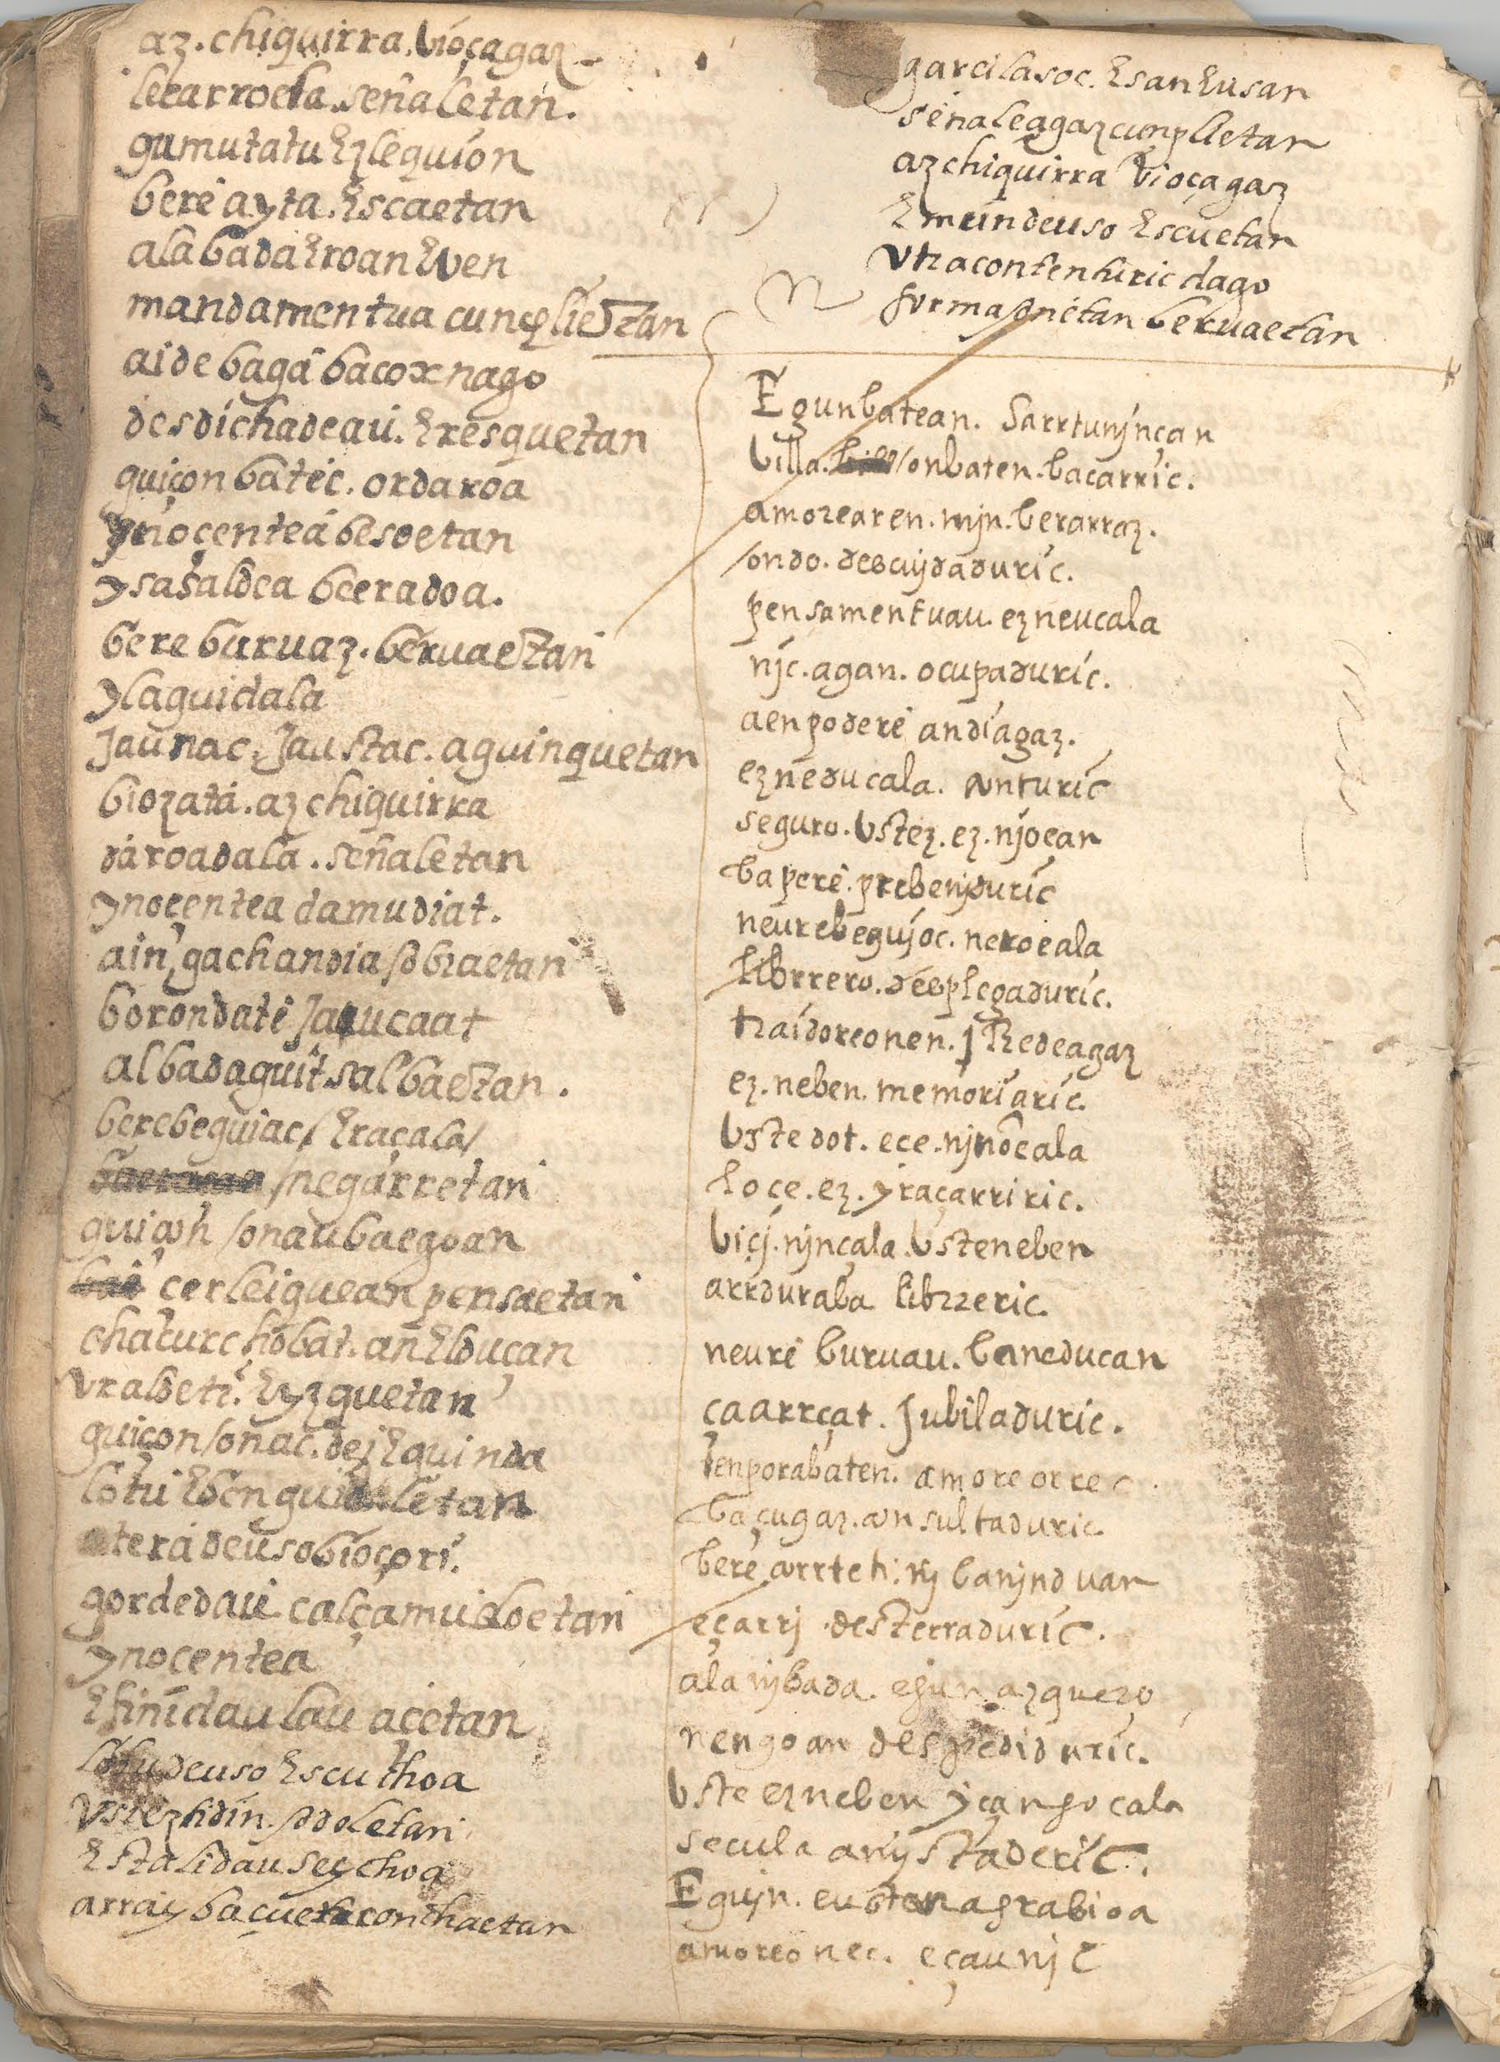 az. chiquirra. vioçagaz
lecarroela. señaletan.
gumutatu Ezlequion
bere ayta. Escaetan
ala bada Eroan Even
mandamentua cunplietan
aide baga bacox nago
desdichadeau. Eresquetan
guiçon batec. ordaroa
ynoçentea besoetan
ysasaldea beeradoa.
bere buruaz. beruaetan
ylaguidala
Jaunac, Jaustac. aguinquetan
biozata. az chiquirra
daroadala. señaletan
ynocentea damudiat.
ain, gachandia sobraetan
borondate Jaucaat
albadaguit salbaetan.
berebeguiac/ Eraçala/
/negarretan
guiçon /onau baegoan
cerleiquean pensaetan
chacurchobat. an Elducan
vraldeti. Eyzquetan
guiçon/onac. dei Equinda
lotu Eben guidaletan
atera deuso bioçori.
gordedau. calçamudoetan
ynocentea
Efinidau lau acetan
lotudeuso Escuthoa
Vstezhdin. /odoletan
Estalidau seychoa
array bacuera conchaetan
garcilasoc. Esan Eusan
señaleagaz cunplietan
az chiquirra vioçagaz
Emeindeuso Escuetan
Vtracontenturic dago
formasinetan beruaetan
Egunbatean. Sarrtunjnçan
villa. /onbaten. bacarric.
amorearen. mjn. berarraz.
/ondo. descuydaduric.
pensamentuau. ezneucala
njc. agan. ocupaduric.
aen podere andiagaz.
ezneducala. conturic
seguro. Vstez. ez. njoean
bapere. prebenjduric
neurebegujoc. neroeala
librrero. desplegaduric.
traidoreonen. J Redeagaz
ez. neben. memoriaric.
Vste dot. ece. njnoeala
hoçe. ez. yraçarriric.
biçj. njnçala. Vsteneben
arrduraba libzzeric.
neure buruau. baneducan
çaarrçat. Jubiladuric.
tenporabaten. amore orrec
baçugaz. consultaduric.
bere corrteti. nj banjnduan
eçarrj. desterraduric.
ala nybada. egun azquero
nengoan despediduric.
Vste ezneben yçango cala
secula anystaderic.
Egujn. eusten agrabioa
amoreonec. eçaunjc